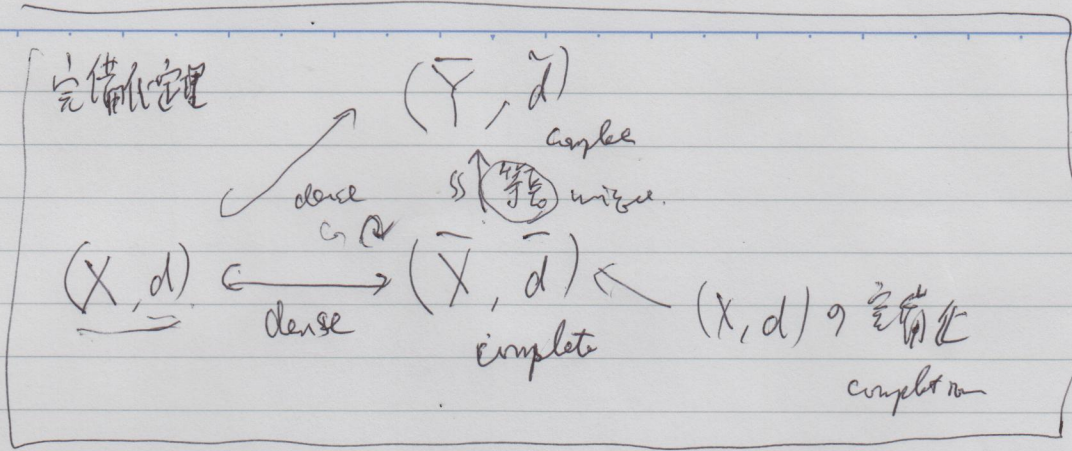 完備化定理
(Ȳ, d̃)
complete
dense
≀≀ ↑ 等長 unique.
(X, d) ↪ (X̄, d̄)
dense
complete
(X, d) の 完備化
completion